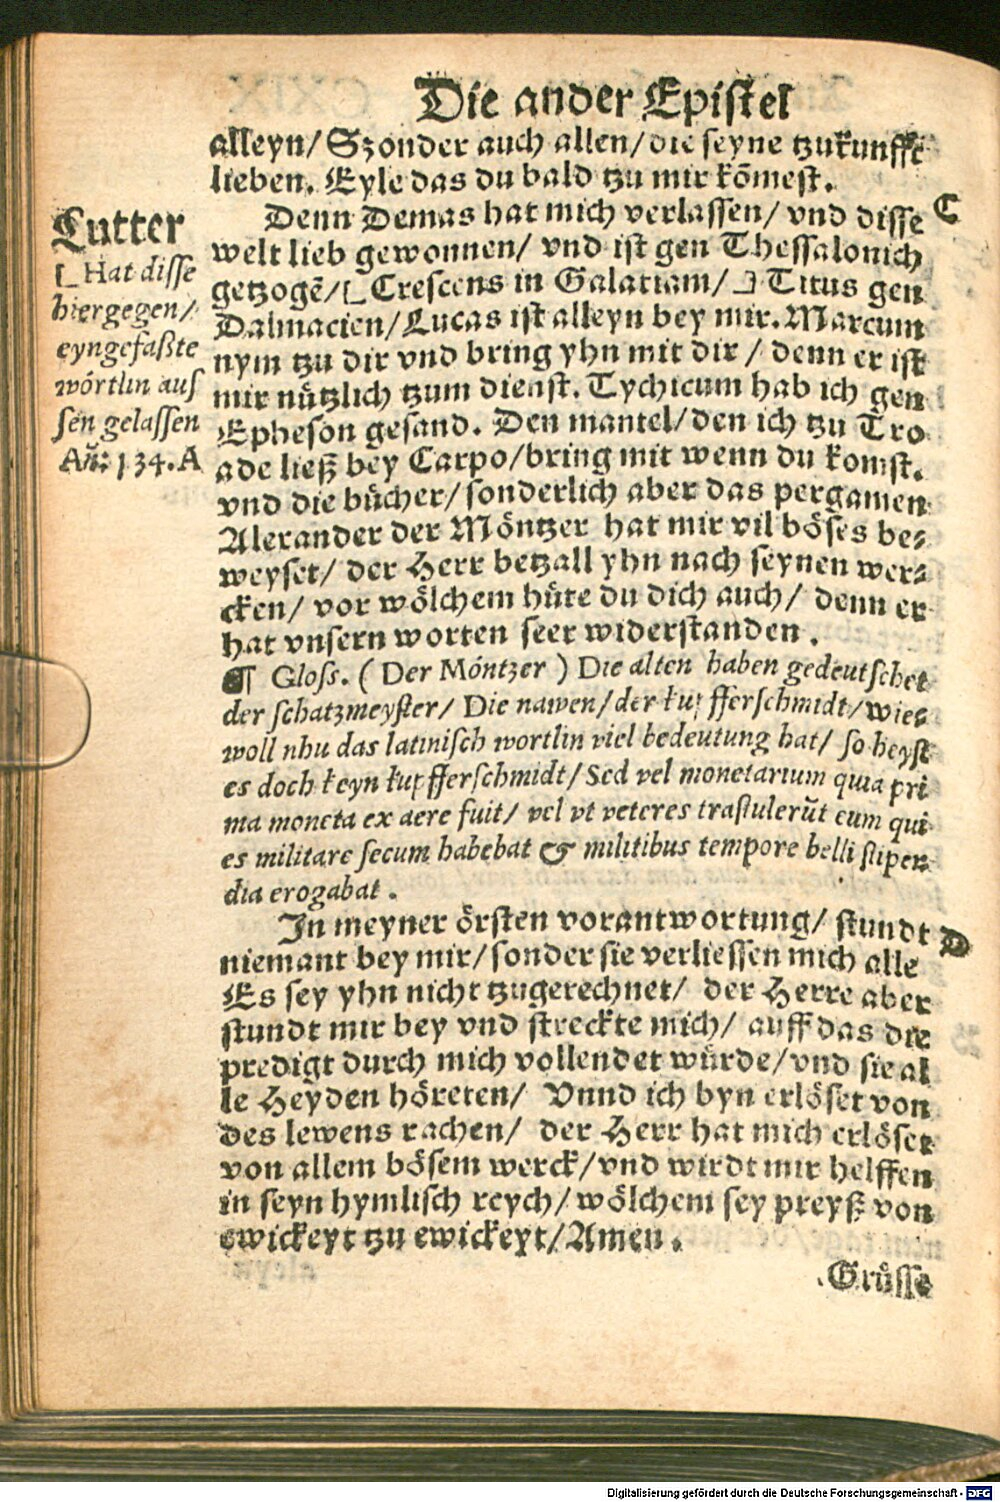 Die ander Epistel
alleyn/ Szonder auch allen/ die seyne tzukunfft
lieben. Eyle das du bald tzu mir kõmest.
Denn Demas hat mich verlassen/ vnd disse
C
welt lieb gewonnen/ vnd ist gen Thessalonich
getzogẽ/ [_ Crescens in Galatiam/ _] Titus gen
Dalmacien/ Lucas ist alleyn bey mir. Marcum
nym tzu dir vnd bring yhn mit dir / denn er ist
mir nützlich tzum dienst. Tychicum hab ich gen
Epheson gesand. Den mantel/ den ich tzu Tro
ade ließ bey Carpo/ bring mit wenn du komst.
vnd die bücher/ sonderlich aber das pergamen
Alexander der Möntzer hat mir vil böses be⸗
weyset/ der Herr betzall yhn nach seynen wer⸗
cken/ vor wölchem hüte du dich auch/ denn er
hat vnsern worten seer widerstanden .
Lutter
[_ Hat disse
hiergegen/
eyngefaßte
wörtlin aus
sen gelassen
Añ: 134. A
¶ Gloss. ( Der Möntzer ) Die alten haben gedeutschet
der schatzmeyster/ Die nawen/ der kupfferschmidt/ wie⸗
woll nhu das latinisch wortlin viel bedeutung hat/ so heyst
es doch keyn kupfferschmidt/ Sed vel monetarium quia pri
ma moneta ex aere fuit/ vel vt veteres trastulerũt eum qui
es militare secum habebat & militibus tempore belli stipen⸗
dia erogabat .
In meyner örsten vorantwortung/ stundt
D
niemant bey mir/ sonder sie verliessen mich alle
Es sey yhn nicht tzugerechnet/ der Herre aber
stundt mir bey vnd streckte mich/ auff das die
predigt durch mich vollendet würde/ vnd sie al
le Heyden höreten/ Vnnd ich byn erlöset von
des lewens rachen/ der Herr hat mich erlöset
von allem bösem werck/ vnd wirdt mir helffen
in seyn hymlisch reych/ wölchem sey preyß von
ewickeyt tzu ewickeyt/ Amen .
Grüsse
Digitalisierung gefördert durch die Deutsche Forschungsgemeinschaft - DFG